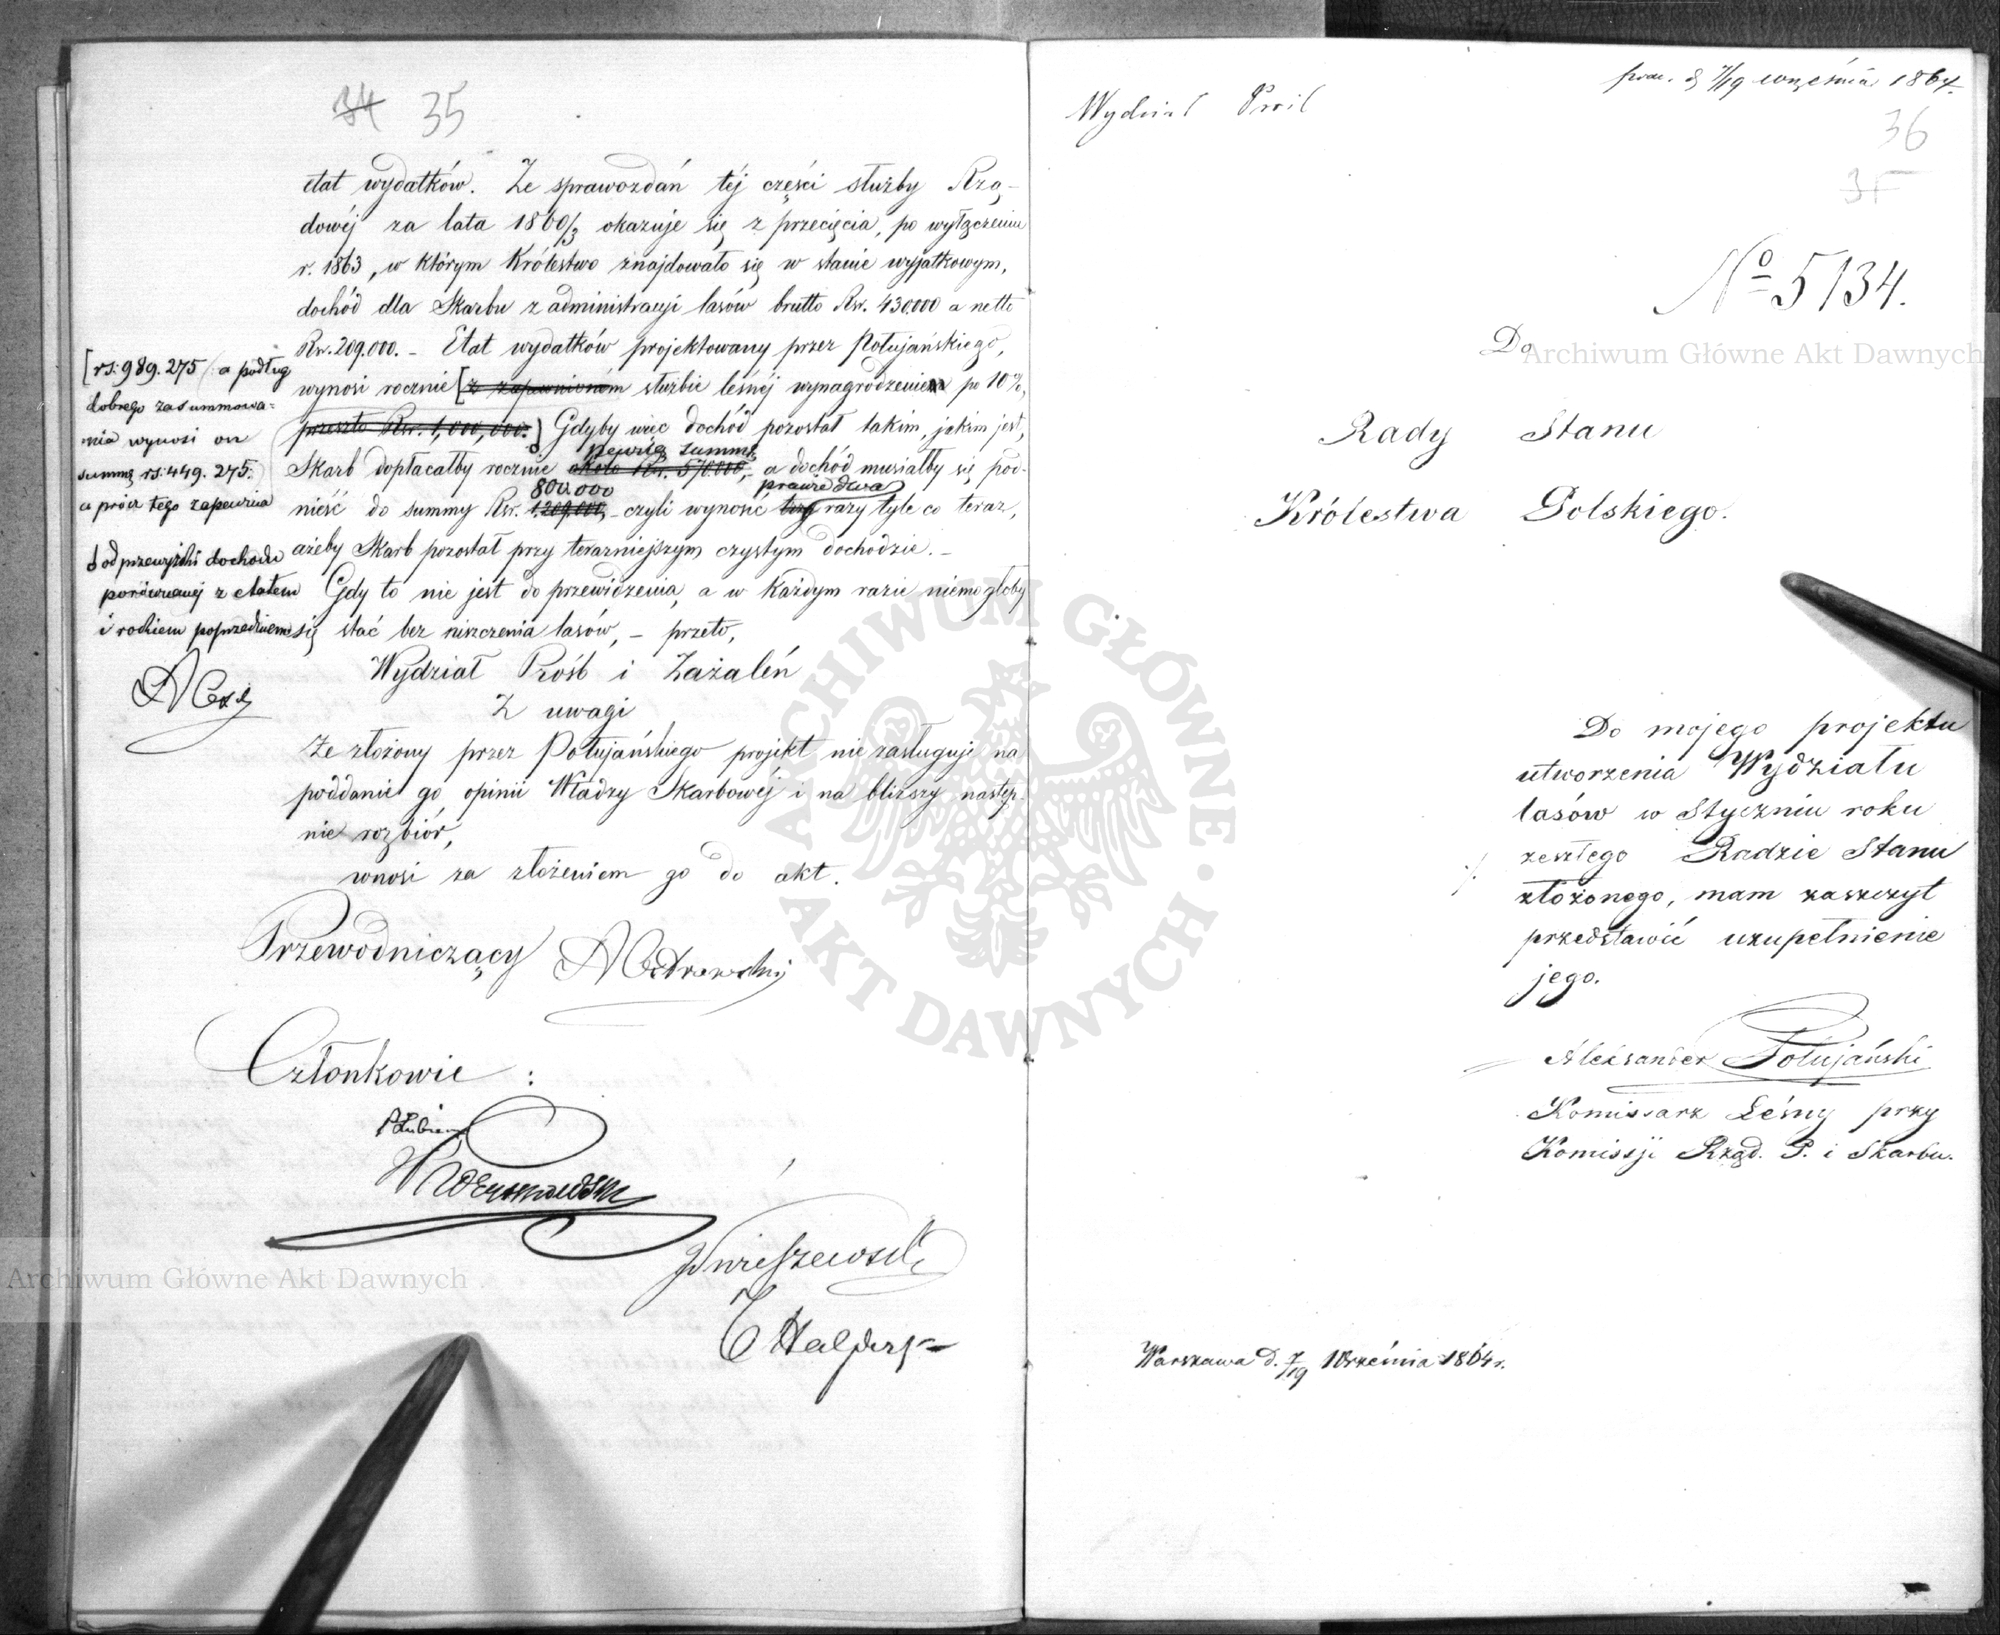 34 35
etat wydatków. Ze sprawozdań téj części służby Rzą-
dowéj za lata 1860/3 okazuje się z przecięcia, po wyłączeniu
r. 1863, w którym Królestwo znajdowało się w stanie wyjątkowym,
dochód dla Skarbu z administracyi lasów brutto Rsr. 430.000 a netto
Rsr. 209.000. – Etat wydatków projektowany przez Połujańskiego,
wynosi rocznie [z zapewnioném służbie leśnéj wynagrodzeniem po 10%,
przeszło Rsr. 1,000,000.] Gdyby więc dochód pozostał takim, jakim jest,
pewną summę
Skarb dopłacałby rocznie około Rsr. 570.000, a dochód musiałby się pod-
800.000 prawie dwa
nieść do summy Rsr. 1.209.000, czyli wynosić trzy razy tyle co teraz,
ażeby Skarb pozostał przy terazniejszym czystym dochodzie. –
Gdy to nie jest do przewidzenia, a w każdym razie niemogłoby
się stać bez niszczenia lasów, – przeto,
Wydział Próśb i Zażaleń
Z uwagi
że złożony przez Połujańskiego projekt nie zasługuje na
poddanie go opinii Władzy Skarbowéj i na bliższy następ-
nie rozbiór,
wnosi za złożeniem go do akt.
[rs. 989.275 a podług
dobrego zasummowa-
nia wynosi on
summę rs. 449.275.
a prócz tego zapewnia
od przewyżki dochodu
porównanej z etatem
i rokiem poprzednim
Przewodniczący
Członkowie:
Archiwum Główne Akt Dawnych
Wydział Próśb
prez. d 7/19 września 1864.
36
35
№ 5134.
Do
Archiwum Główne Akt Dawnych
Rady Stanu
Królestwa Polskiego.
Do mojego projektu
utworzenia Wydziału
lasów w Styczniu roku
zeszłego Radzie Stanu
złożonego, mam zaszczyt
przedstawić uzupełnienie
jego.
Aleksander Połujański
Komissarz Leśny przy
Komissji Rząd. P. i Skarbu.
Warszawa d. 7/19 Września 1864 r.
ARCHIWUM GŁÓWNE
AKT DAWNYCH